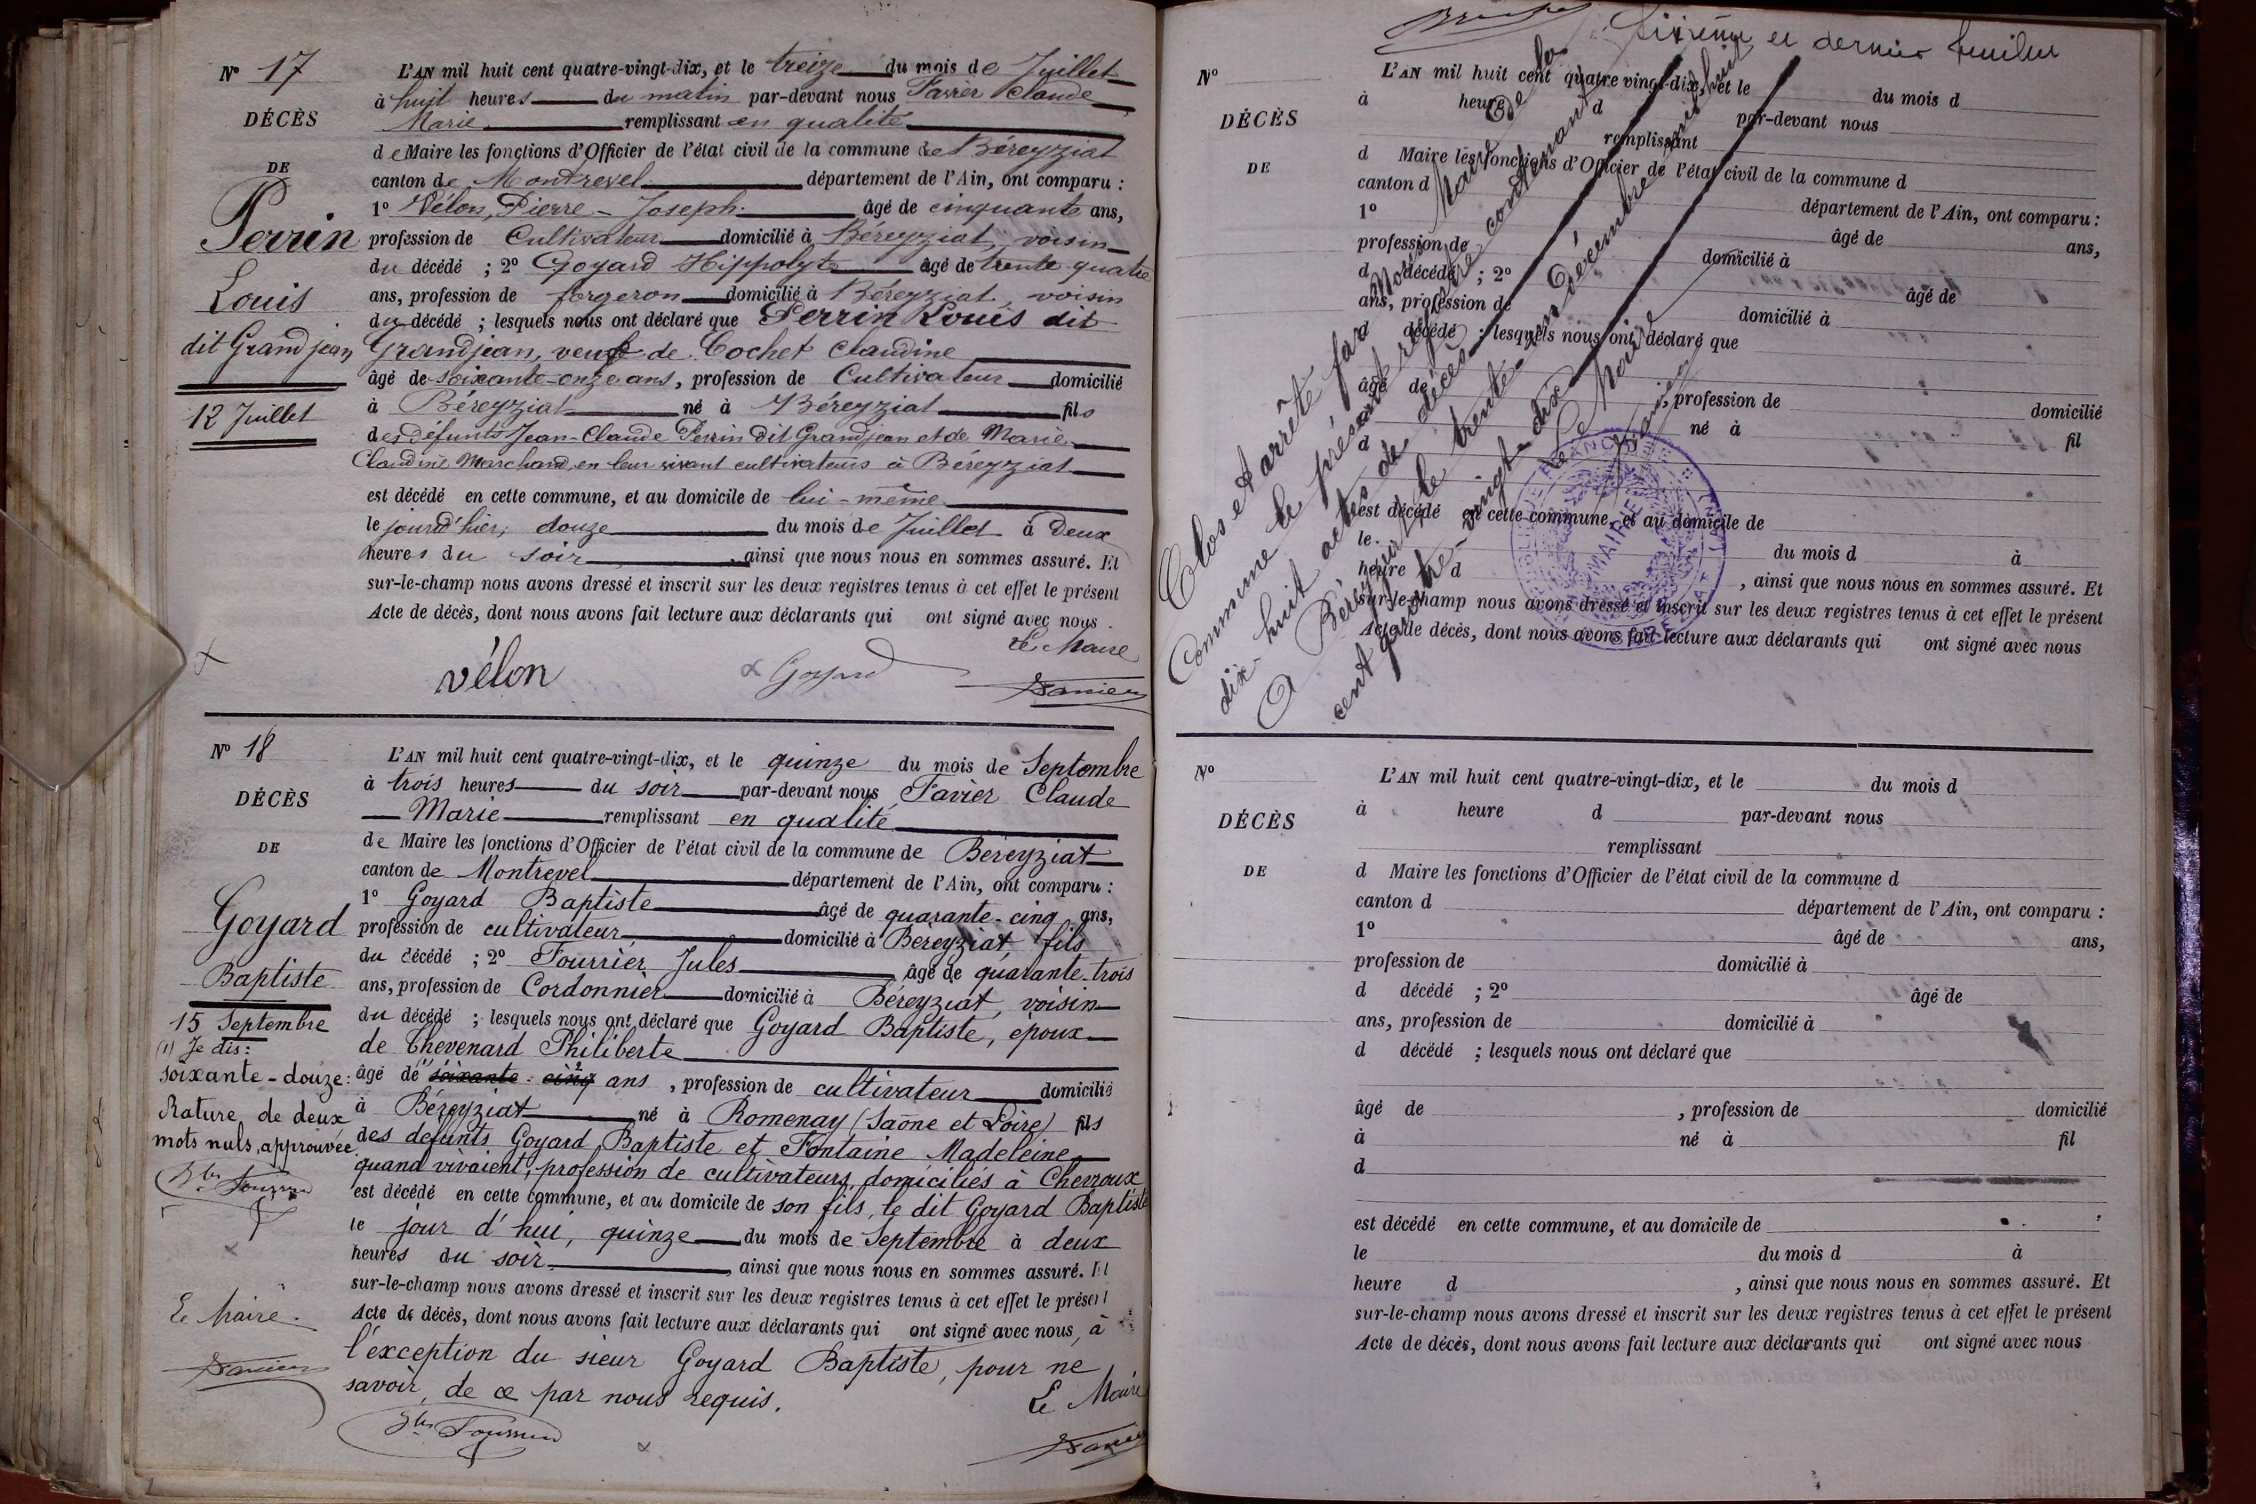 N° 17
DÉCÈS
DE
Perrin
Louis
dit Grandjean
12 Juillet
L'AN mil huit cent quatre-vingt-dix, et le treize du mois de Juillet
à huit heures du matin par-devant nous Favier Claude
Marie remplissant en qualité
de Maire les fonctions d'Officier de l'état civil de la commune de Béreyziat
canton de Montrevel département de l'Ain, ont comparu :
1° Vélon, Pierre-Joseph. âgé de cinquante ans,
profession de Cultivateur domicilié à Béreyziat, voisin
du décédé ; 2° Goyard Hippolyte âgé de trente quatre
ans, profession de forgeron domicilié à Béreyziat, voisin
du décédé ; lesquels nous ont déclaré que Perrin Louis dit
Grandjean, veuf de Cochet Claudine
âgé de soixante-onze ans, profession de Cultivateur domicilié
à Béreyziat né à Béreyziat fils
des défunts Jean-Claude Perrin dit Grandjean et de Marie
Claudine Marchand, en leur vivant cultivateurs à Béreyziat
est décédé en cette commune, et au domicile de lui-même
le jourd'hier, douze du mois de Juillet à Deux
heures du soir, ainsi que nous nous en sommes assuré. Et
sur-le-champ nous avons dressé et inscrit sur les deux registres tenus à cet effet le présent
Acte de décès, dont nous avons fait lecture aux déclarants qui ont signé avec nous.
Le Maire
vélon Goyard Favier
N° 18
DÉCÈS
DE
Goyard
Baptiste
15 Septembre
(1) Je dis :
soixante-douze :
Rature de deux
mots nuls, approuvée.
Jles Fourrier
Le Maire.
Favier
L'AN mil huit cent quatre-vingt-dix, et le quinze du mois de Septembre
à trois heures du soir par-devant nous Favier Claude
Marie remplissant en qualité
de Maire les fonctions d'Officier de l'état civil de la commune de Béreyziat
canton de Montrevel département de l'Ain, ont comparu :
1° Goyard Baptiste âgé de quarante-cinq ans,
profession de cultivateur, domicilié à Béreyziat fils
du décédé ; 2° Fourrier Jules âgé de quarante-trois
ans, profession de Cordonnier domicilié à Béreyziat, voisin
du décédé ; lesquels nous ont déclaré que Goyard Baptiste, époux
de Thevenard Philiberte
âgé de soixante-cinq ans, profession de cultivateur domicilié
à Béreyziat né à Romenay (Saône et Loire) fils
des defunts Goyard Baptiste et Fontaine Madeleine
quand vivaient, profession de cultivateurs, domiciliés à Chevroux
est décédé en cette commune, et au domicile de son fils, le dit Goyard Baptiste
le jour d'hui, quinze du mois de Septembre à deux
heures du soir, ainsi que nous nous en sommes assuré. Et
sur-le-champ nous avons dressé et inscrit sur les deux registres tenus à cet effet le présent
Acte de décès, dont nous avons fait lecture aux déclarants qui ont signé avec nous, à
l'exception du sieur Goyard Baptiste, pour ne
savoir, de ce par nous requis.
Le Maire
Jles Fourrier Favier
Sixième et dernier feuillet
N°
DÉCÈS
DE
L'AN mil huit cent quatre-vingt-dix, et le du mois d
à heure d par-devant nous
remplissant
d Maire les fonctions d'Officier de l'état civil de la commune d
canton d département de l'Ain, ont comparu :
1° âgé de ans,
profession de domicilié à
d décédé ; 2° âgé de
ans, profession de domicilié à
d décédé ; lesquels nous ont déclaré que
âgé de , profession de domicilié
né à fil
d
est décédé en cette commune, et au domicile de
le du mois d à
heure d , ainsi que nous nous en sommes assuré. Et
sur-le-champ nous avons dressé et inscrit sur les deux registres tenus à cet effet le présent
Acte de décès, dont nous avons fait lecture aux déclarants qui ont signé avec nous
Clos et arrêté par Nous Maire de la
Commune le présent registre contenant
dix-huit actes de décès.
A Béreyziat, le trente-un Décembre mil huit
cent quatre-vingt-dix
Le Maire
Favier
RÉPUBLIQUE FRANÇAISE
MAIRIE
BÉREYZIAT (AIN)
N°
DÉCÈS
DE
L'AN mil huit cent quatre-vingt-dix, et le du mois d
à heure d par-devant nous
remplissant
d Maire les fonctions d'Officier de l'état civil de la commune d
canton d département de l'Ain, ont comparu :
1° âgé de ans,
profession de domicilié à
d décédé ; 2° âgé de
ans, profession de domicilié à
d décédé ; lesquels nous ont déclaré que
âgé de , profession de domicilié
à né à fil
d
est décédé en cette commune, et au domicile de
le du mois d à
heure d , ainsi que nous nous en sommes assuré. Et
sur-le-champ nous avons dressé et inscrit sur les deux registres tenus à cet effet le présent
Acte de décès, dont nous avons fait lecture aux déclarants qui ont signé avec nous